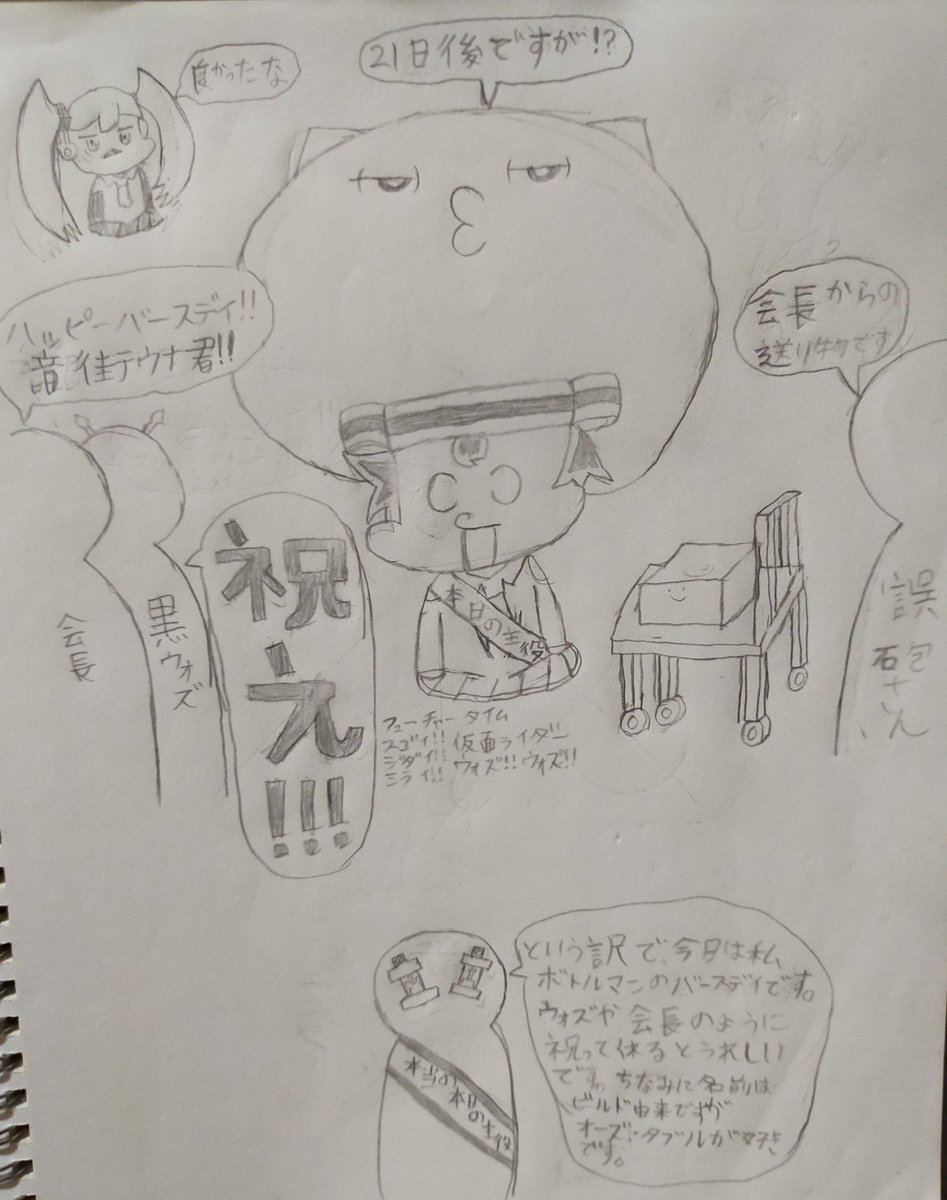 良かったな
21日後ですが!?
ハッピーバースデイ!!
音佳テウナ君!!
会長からの
送り物です
会長
黒ウォズ
祝え!!!
本日の主役
誤砲さん
フューチャータイム
スゴイ!! 仮面ライダー
ジダイ!!
ミライ!! ウォズ!! ウォズ!!
という訳で、今日は私
ボトルマンのバースデイです。
ウォズや会長のように
祝ってくれるとうれしい
です。ちなみに名前は
ビルド由来ですが
オーズ・ダブルが好き
です。
本当の本日の主役